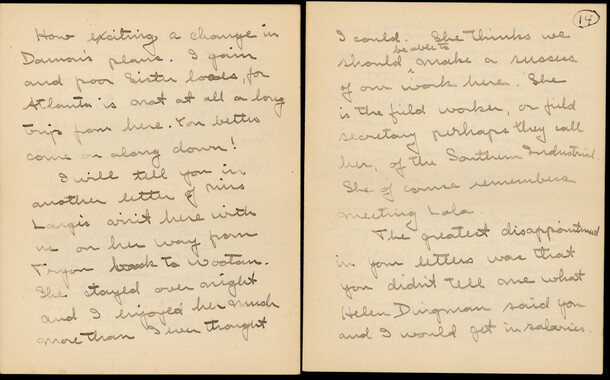 How exciting, a change in
Damon's plans. I gain
and poor Sister loses, for
Atlanta is not at all a long
trip from here. You better
come on along down!
I will tell you in
another letter of Miss
Large's visit here with
us on her way from
Tryon back to Wooton.
She stayed over night
and I enjoyed her much
more than I ever thought
14
I could. She thinks we
should be able to make a success
of our work here. She
is the field worker, or field
secretary perhaps they call
her, of the Southern Industrial.
She of course remembers
meeting Lola.
The greatest disappointment
in your letters was that
you didn't tell me what
Helen Dingman said you
and I would get in salaries.